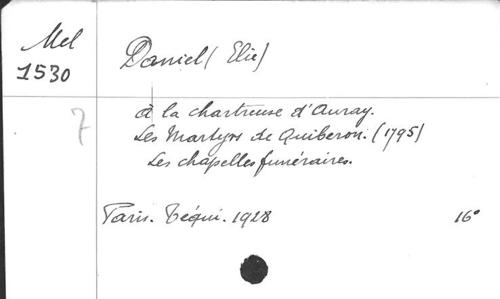 Mel
1530
7
Daniel (Elie)
à la chartreuse d'Auray.
Les Martyrs de Quiberon. (1795)
Les chapelles funéraires.
Paris. Téqui. 1928
16°